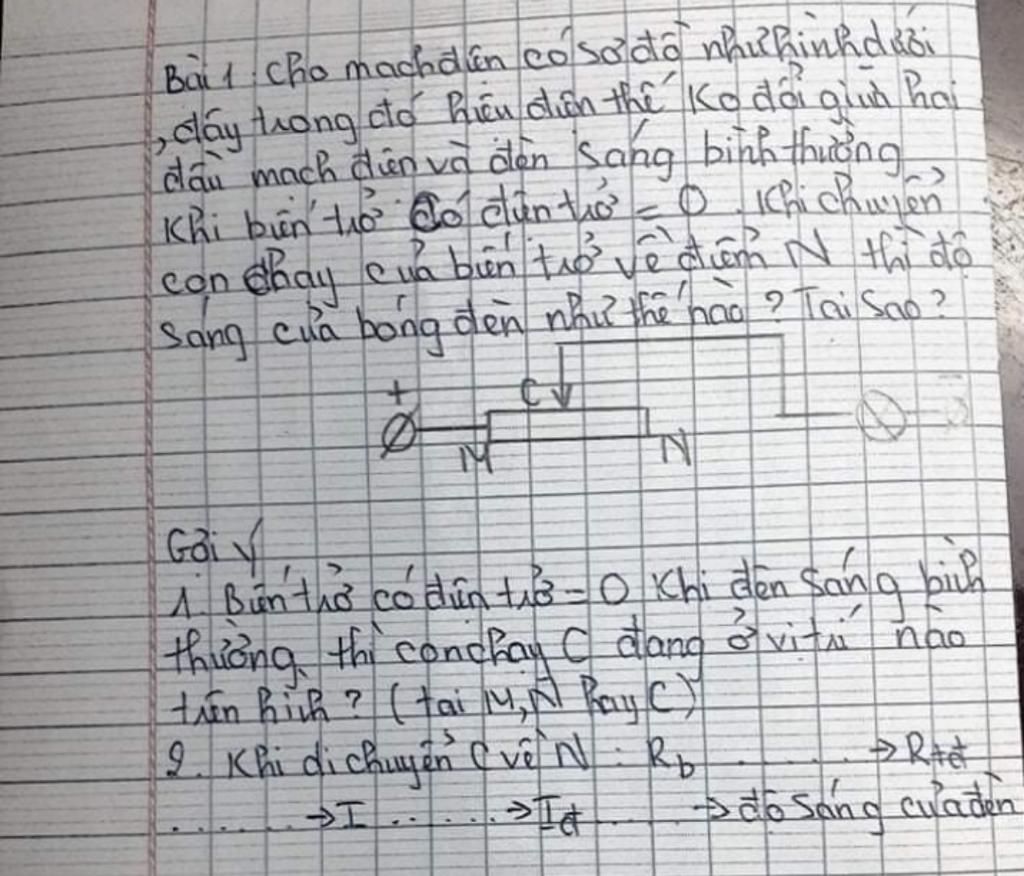 Bài 1: Cho mạch điện có sơ đồ như hình dưới
, đây trong đó hiệu điện thế ko đổi giữa hai
đầu mạch điện và đèn sáng bình thường
Khi biến trở có điện trở = 0. Khi chuyển
con chạy của biến trở về điểm N thì độ
sáng của bóng đèn như thế nào? Tại sao?
+ C
M N
Gợi ý
1. Biến trở có điện trở = 0 Khi đèn sáng bình
thường, thì con chạy C đang ở vị trí nào
trên hình? (tại M, N hay C)
2. Khi di chuyển C về N: Rb ........ → Rtđ
....... → I ....... → Iđ ....... → độ sáng của đèn